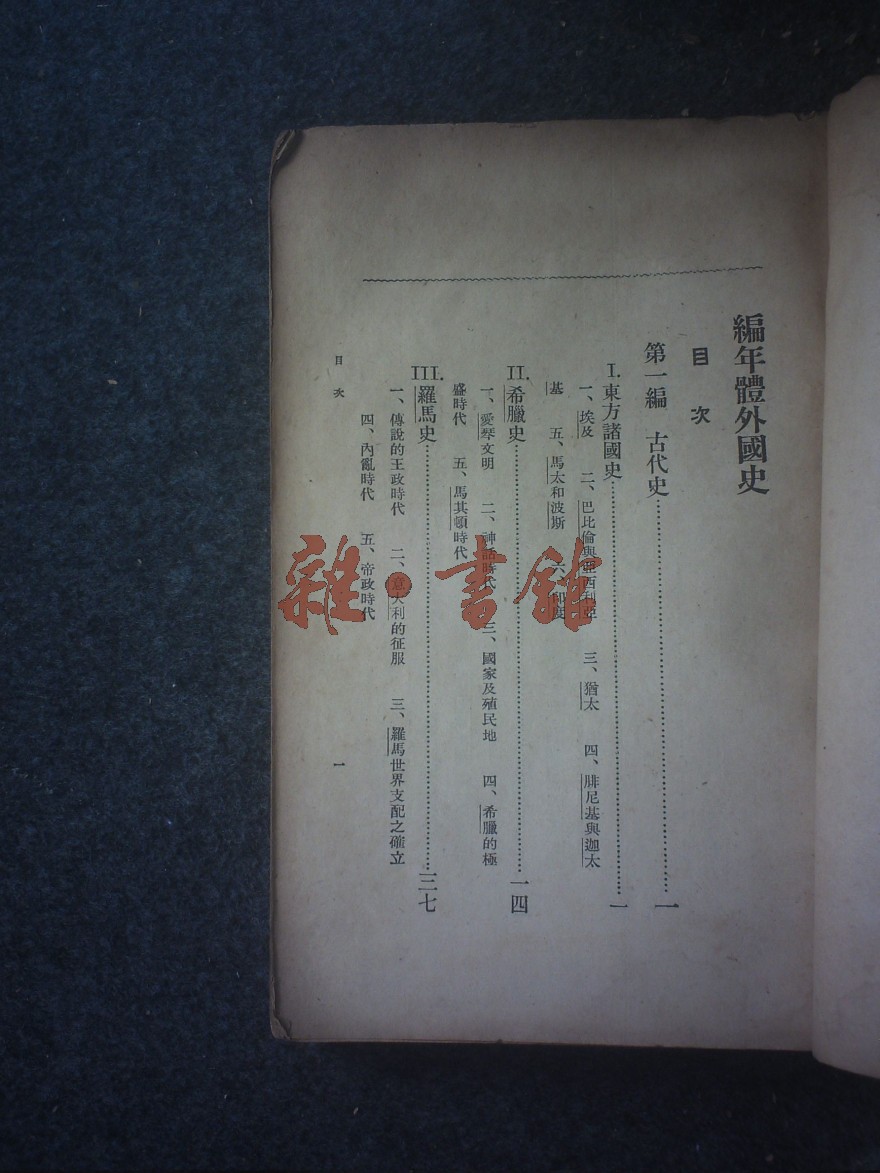 編年體外國史
目次
第一編 古代史……一
I. 東方諸國史……一
一、埃及 二、巴比倫與亞西利亞 三、猶太 四、腓尼基與迦太
基 五、馬太和波斯 六、印度
II. 希臘史……一四
一、愛琴文明 二、神話時代 三、國家及殖民地 四、希臘的極
盛時代 五、馬其頓時代
III. 羅馬史……三七
一、傳說的王政時代 二、意大利的征服 三、羅馬世界支配之確立
四、內亂時代 五、帝政時代
目次
一
雜·書館